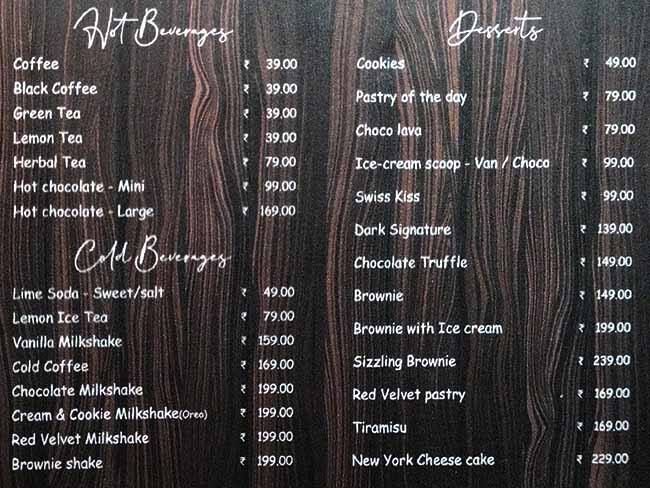 Hot Beverages
Coffee ₹ 39.00
Black Coffee ₹ 39.00
Green Tea ₹ 39.00
Lemon Tea ₹ 39.00
Herbal Tea ₹ 79.00
Hot chocolate - Mini ₹ 99.00
Hot chocolate - Large ₹ 169.00
Cold Beverages
Lime Soda - Sweet/salt ₹ 49.00
Lemon Ice Tea ₹ 79.00
Vanilla Milkshake ₹ 159.00
Cold Coffee ₹ 169.00
Chocolate Milkshake ₹ 199.00
Cream & Cookie Milkshake(Oreo) ₹ 199.00
Red Velvet Milkshake ₹ 199.00
Brownie shake ₹ 199.00
Desserts
Cookies ₹ 49.00
Pastry of the day ₹ 79.00
Choco lava ₹ 79.00
Ice-cream scoop - Van / Choco ₹ 99.00
Swiss Kiss ₹ 99.00
Dark Signature ₹ 139.00
Chocolate Truffle ₹ 149.00
Brownie ₹ 149.00
Brownie with Ice cream ₹ 199.00
Sizzling Brownie ₹ 239.00
Red Velvet pastry ₹ 169.00
Tiramisu ₹ 169.00
New York Cheese cake ₹ 229.00